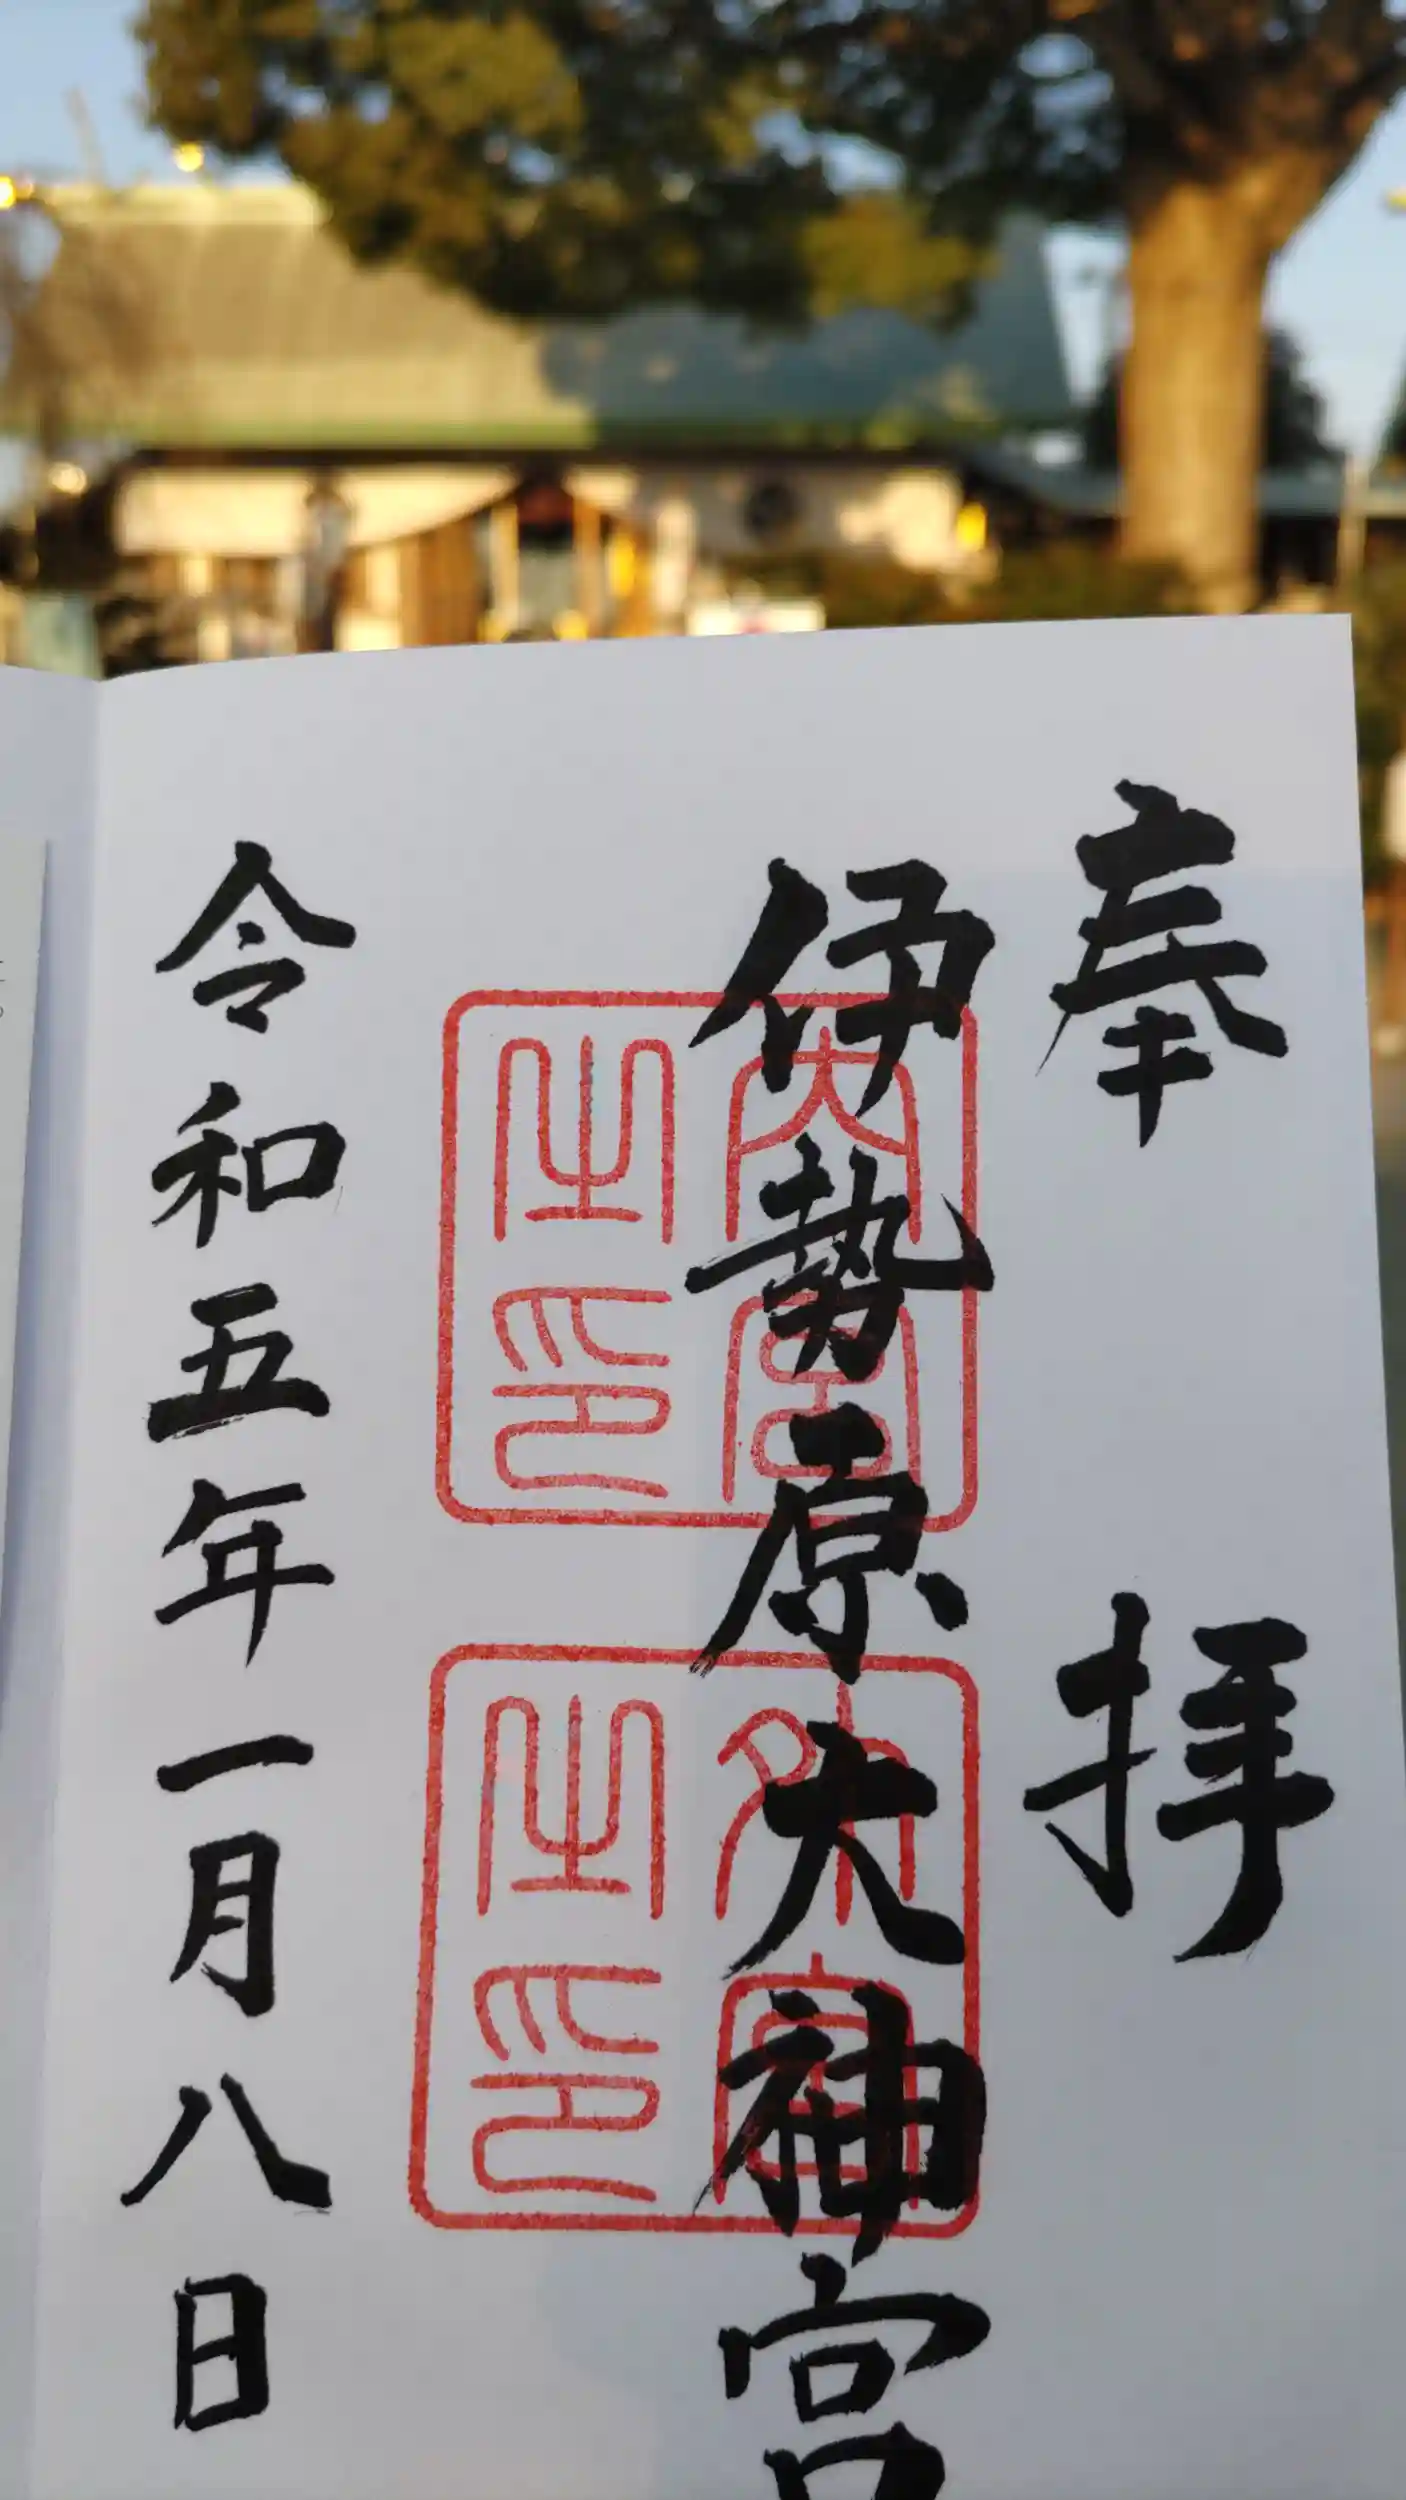 奉拝
伊勢原大神宮
内宮之印
外宮之印
令和五年一月八日